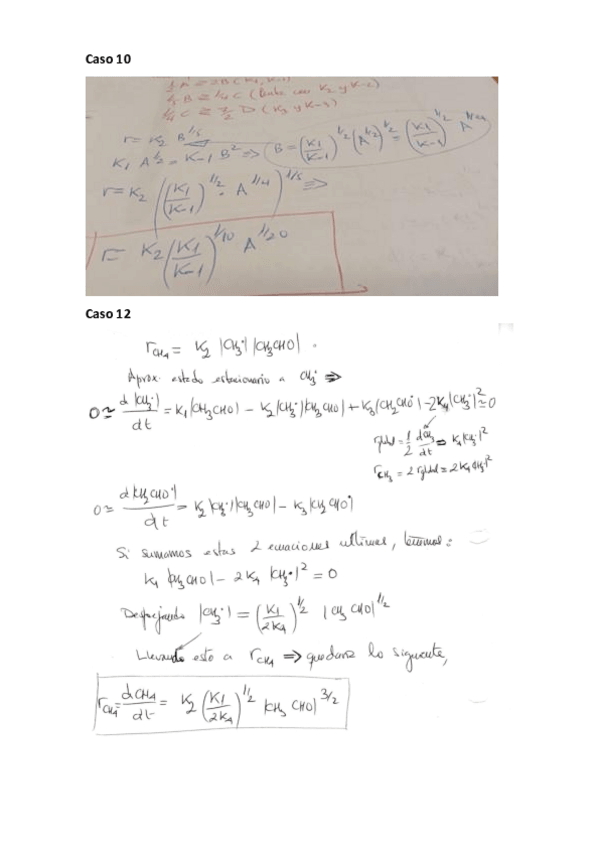 Caso 10
½ A ⇌ 2B (K₁, K-1)
⅕ B ⇌ ¼ C (lenta con K₂ y K-2)
¼ C ⇌ D (K₃ y K-3)
r = K₂ B^1/5
B = (K₁/K-1)^1/2 (A^1/2)^1/2 = (K₁/K-1)^1/2 A^1/4
K₁ A^1/2 = K-1 B² ⇒
r = K₂ ((K₁/K-1)^1/2 · A^1/4)^1/5 ⇒
r = K₂ (K₁/K-1)^1/10 A^1/20
Caso 12
r_CH₄ = K₂ |CH₃·| |CH₃CHO|
Aprox. estado estacionario a CH₃· ⇒
0 ≃ d|CH₃·|/dt = K₁|CH₃CHO| − K₂|CH₃·||CH₃CHO| + K₃|CH₂CHO·| − 2K₄|CH₃·|² ≃ 0
rglobal = ½ dCH₃/dt = K₄|CH₃·|²
r_CH₃ = 2 rglobal = 2K₄|CH₃·|²
0 ≃ d|CH₂CHO·|/dt = K₂|CH₃·||CH₃CHO| − K₃|CH₂CHO·|
Si sumamos estas 2 ecuaciones ultimas, tenemos:
K₁|CH₃CHO| − 2K₄|CH₃·|² = 0
Despejando |CH₃·| = (K₁/2K₄)^1/2 |CH₃CHO|^1/2
Llevando esto a r_CH₄ ⇒ quedaria lo siguiente,
r_CH₄ = dCH₄/dt = K₂ (K₁/2K₄)^1/2 |CH₃CHO|^3/2